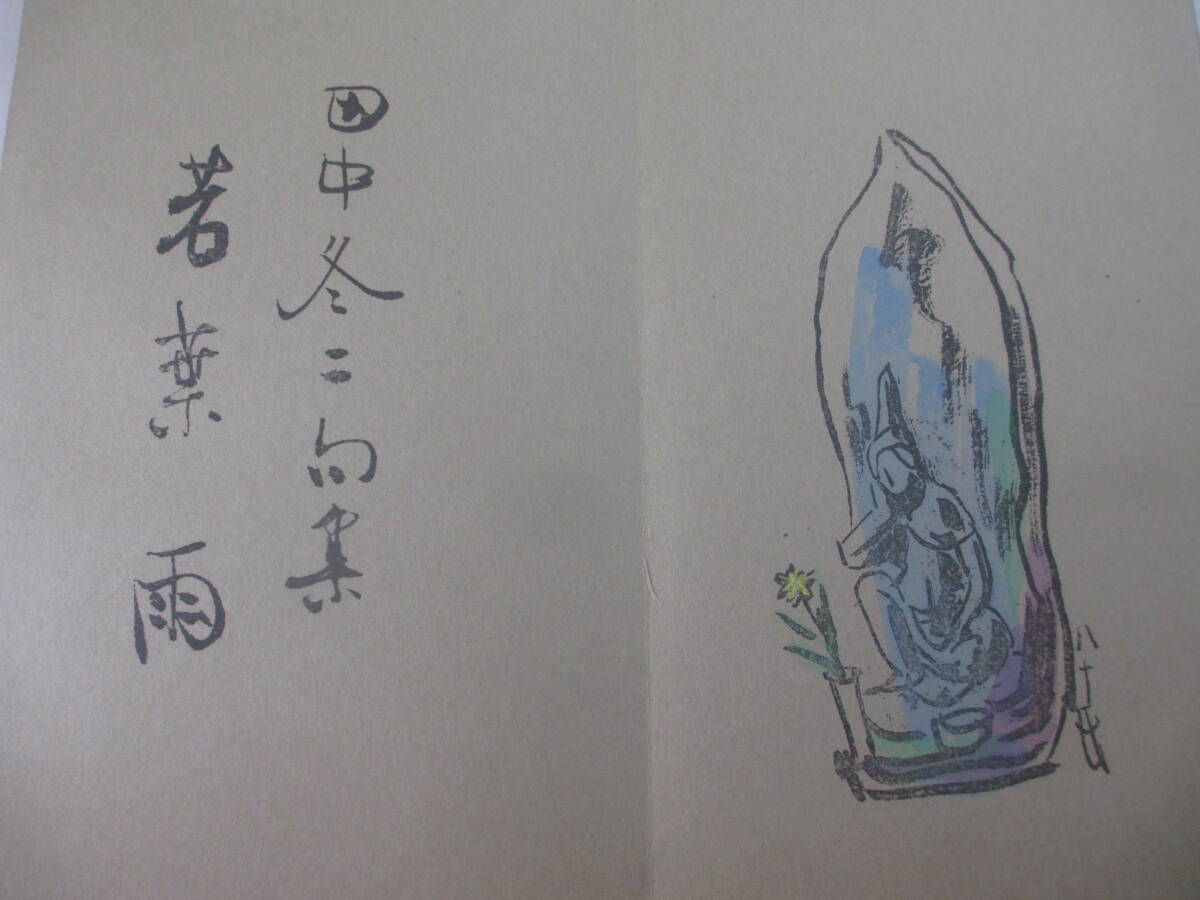 田中冬二句集
若葉雨